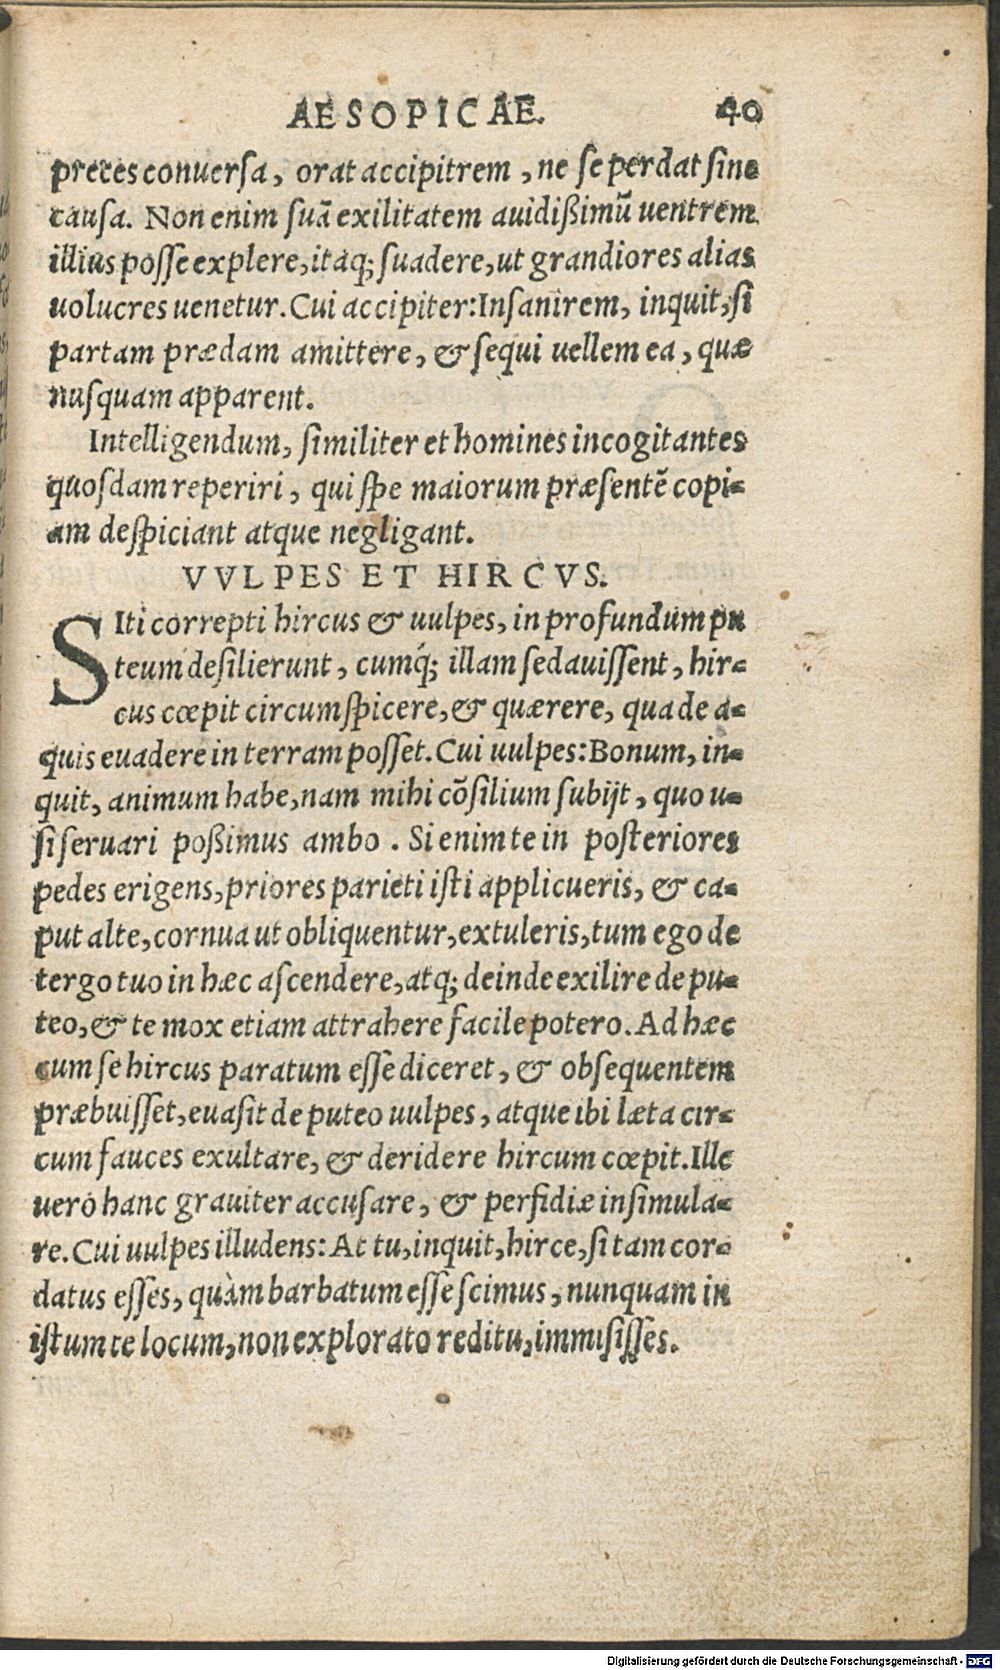 AESOPICAE. 40
preces conuersa, orat accipitrem, ne se perdat sine
causa. Non enim suā exilitatem auidißimū uentrem
illius posse explere, itaq; suadere, ut grandiores alias
uolucres uenetur. Cui accipiter: Insanirem, inquit, si
partam prædam amittere, & sequi uellem ea, quæ
nusquam apparent.
Intelligendum, similiter et homines incogitantes
quosdam reperiri, qui spe maiorum præsentē copi-
am despiciant atque negligant.
VVLPES ET HIRCVS.
SIti correpti hircus & uulpes, in profundum pu
teum desilierunt, cumq́; illam sedauissent, hir-
cus cœpit circumspicere, & quærere, qua de a-
quis euadere in terram posset. Cui uulpes: Bonum, in-
quit, animum habe, nam mihi cōsilium subijt, quo u-
si seruari poßimus ambo. Si enim te in posteriores
pedes erigens, priores parieti isti applicueris, & ca-
put alte, cornua ut obliquentur, extuleris, tum ego de
tergo tuo in hæc ascendere, atq; deinde exilire de pu-
teo, & te mox etiam attrahere facile potero. Ad hæc
cum se hircus paratum esse diceret, & obsequentem
præbuisset, euasit de puteo uulpes, atque ibi læta cir-
cum fauces exultare, & deridere hircum cœpit. Ille
uerò hanc grauiter accusare, & perfidiæ insimula-
re. Cui uulpes illudens: At tu, inquit, hirce, si tam cor-
datus esses, quàm barbatum esse scimus, nunquam in
istum te locum, non explorato reditu, immisisses.
Digitalisierung gefördert durch die Deutsche Forschungsgemeinschaft - DFG